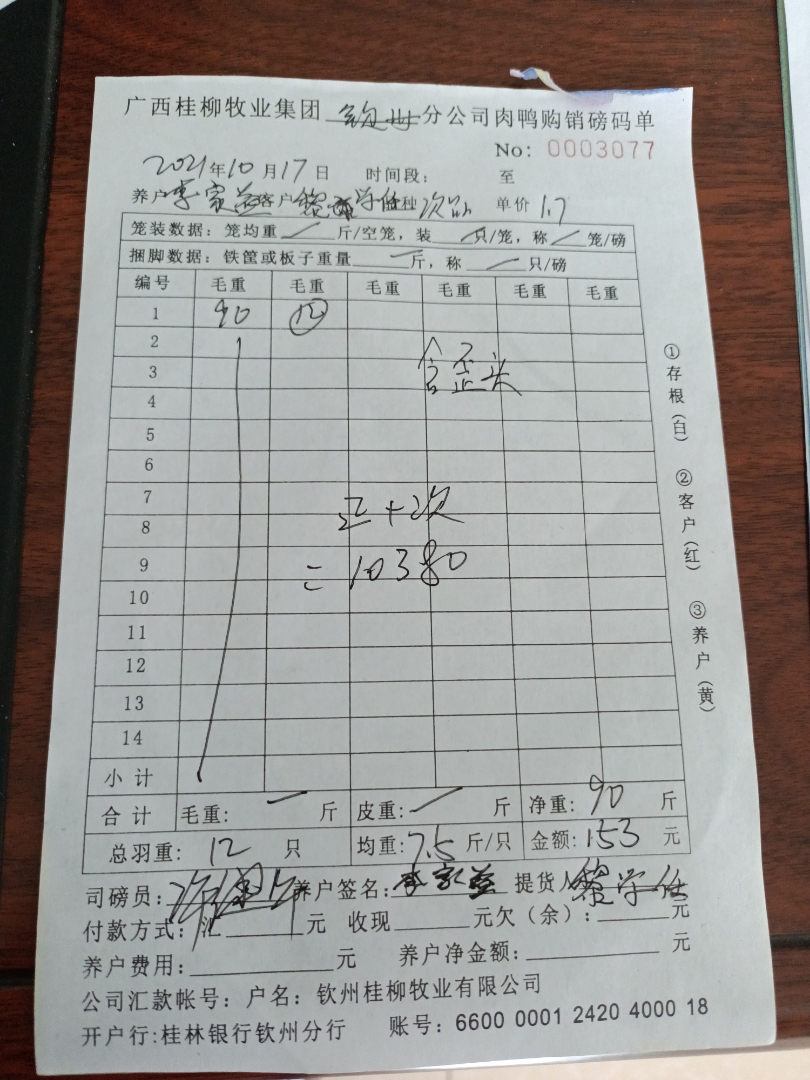 广西桂柳牧业集团 钦州 分公司肉鸭购销磅码单
No: 0003077
2021年10月17日 时间段: 至
养户 李家益 客户 黎学任 种 次品 单价 1.7
笼装数据: 笼均重 / 斤/空笼, 装 / 只/笼, 称 / 笼/磅
捆脚数据: 铁筐或板子重量 — 斤, 称 — 只/磅
编号 毛重 毛重 毛重 毛重 毛重 毛重
1 90 12
2
含歪头
3
4
5
6
7
正+次
8
9
= 10380
10
11
12
13
14
小计
合计 毛重: — 斤 皮重: / 斤 净重: 90 斤
总羽重: 12 只 均重: 7.5 斤/只 金额: 153 元
司磅员: 养户签名: 李家益 提货人 黎学任
付款方式: 汇 元 收现 元欠(余): 元
养户费用: 元 养户净金额: 元
公司汇款帐号: 户名: 钦州桂柳牧业有限公司
开户行:桂林银行钦州分行 账号: 6600 0001 2420 4000 18
①存根(白) ②客户(红) ③养户(黄)